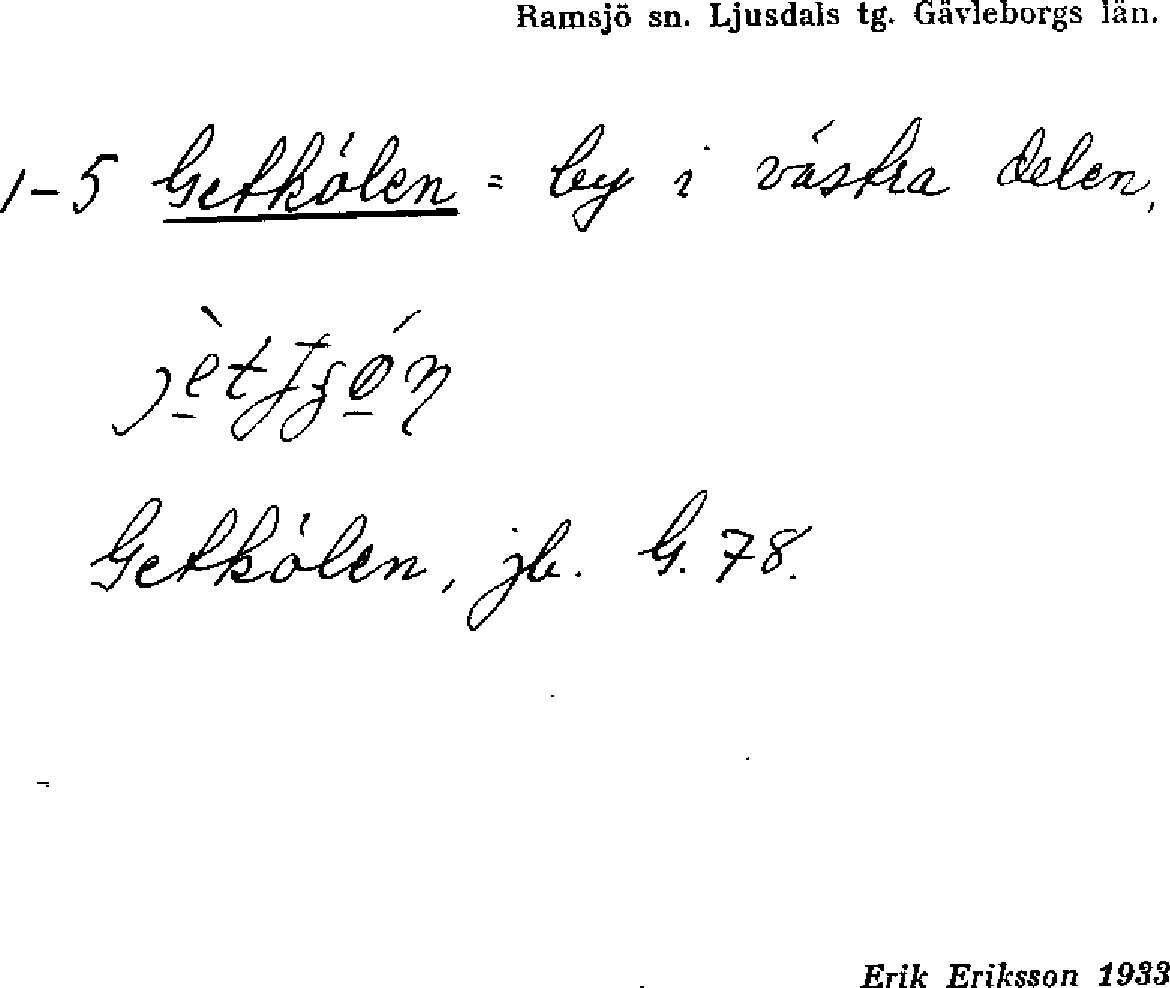 Ramsjö sn. Ljusdals tg. Gävleborgs län.
1-5 Getkölen = by i västra delen,
Getkölen, jb. G. 78.
Erik Eriksson 1933